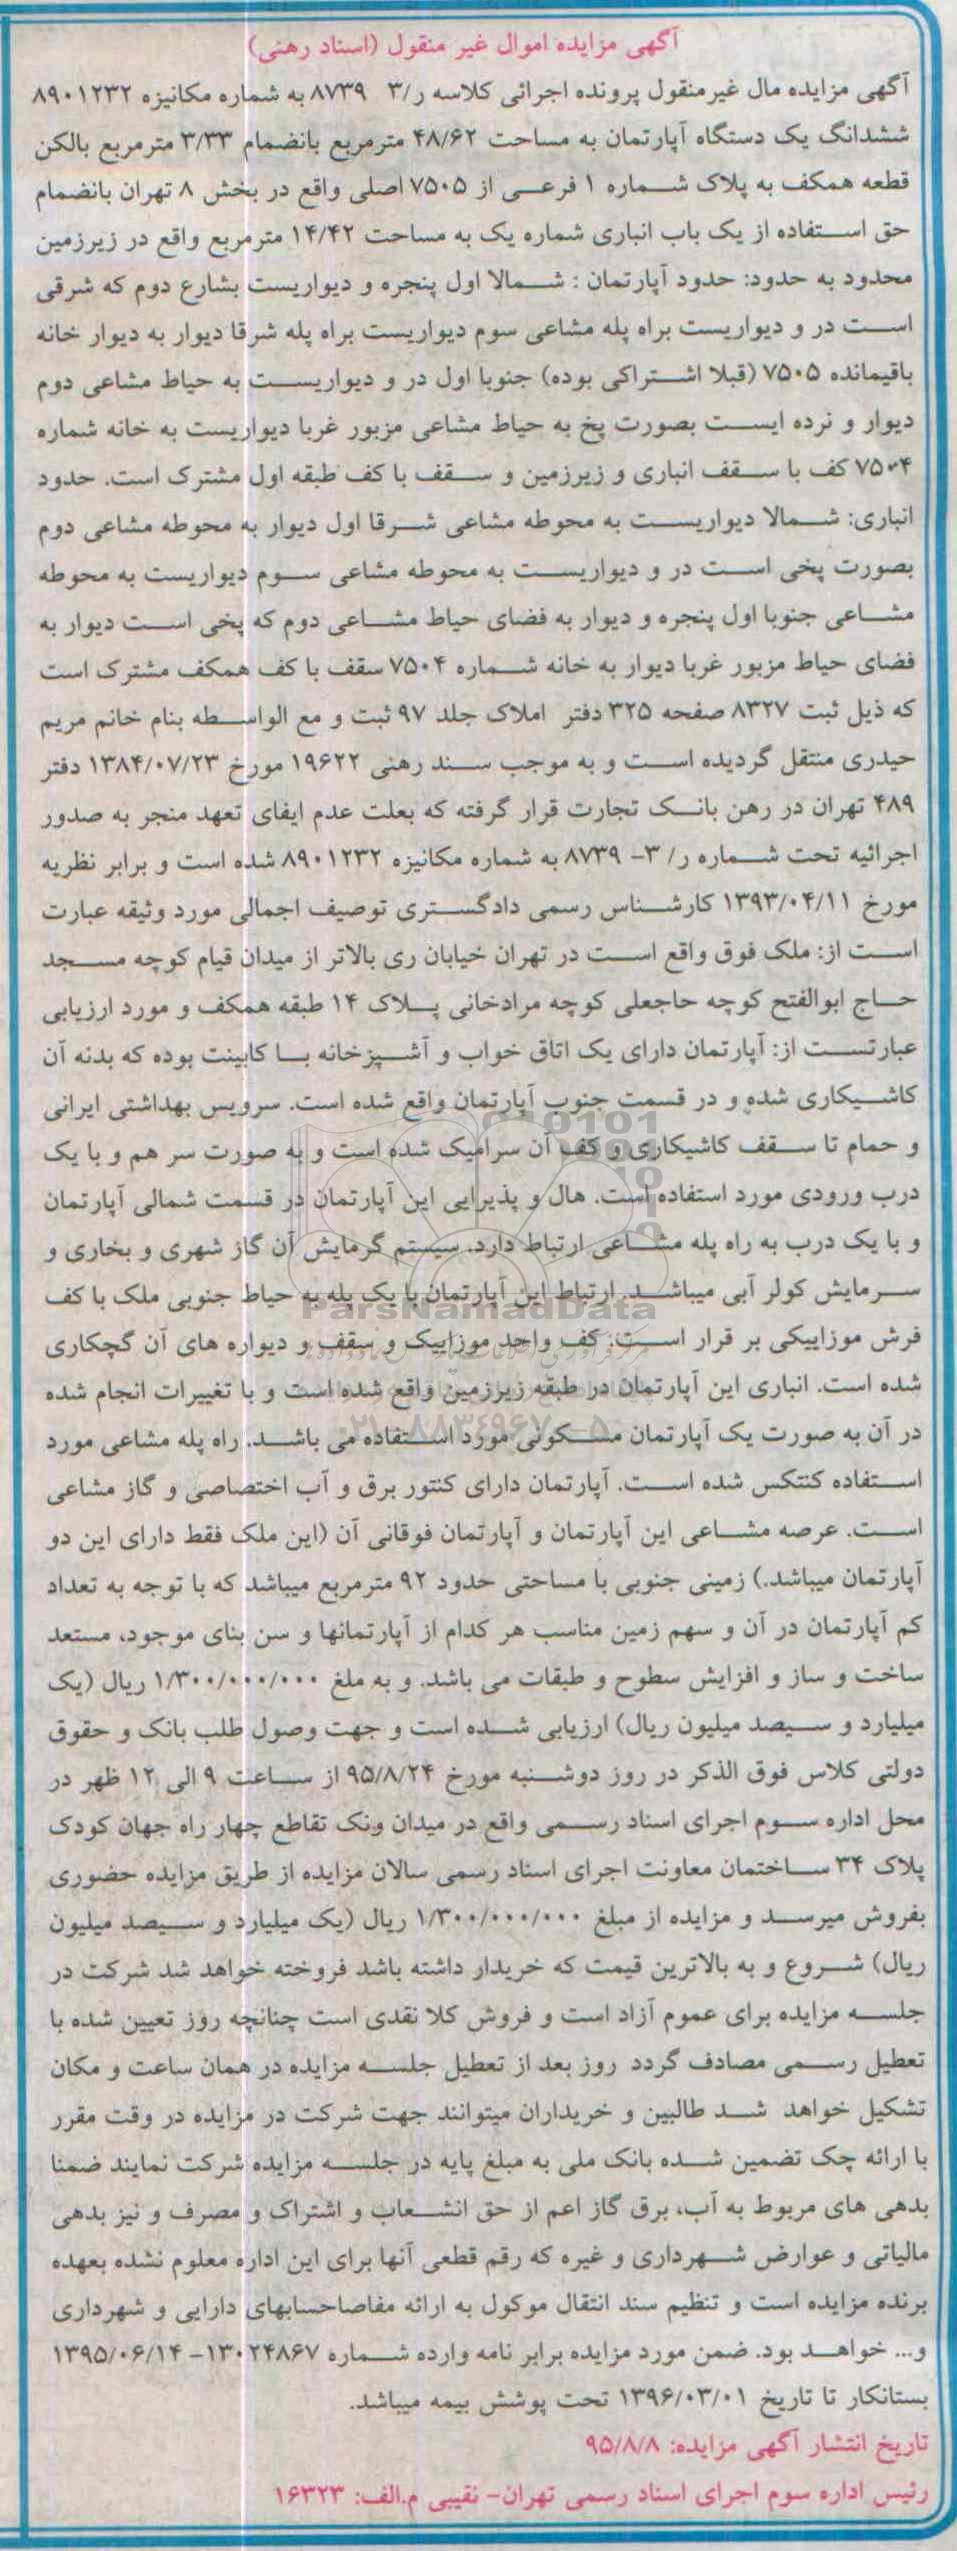 آگهی مزایده اموال غیر منقول (اسناد رهنی)
آگهی مزایده مال غیرمنقول پرونده اجرائی کلاسه ر/۳ ۸۷۳۹ به شماره مکانیزه ۸۹۰۱۲۳۲
ششدانگ یک دستگاه آپارتمان به مساحت ۴۸/۶۲ مترمربع بانضمام ۳/۳۳ مترمربع بالکن
قطعه همکف به پلاک شماره ۱ فرعی از ۷۵۰۵ اصلی واقع در بخش ۸ تهران بانضمام
حق استفاده از یک باب انباری شماره یک به مساحت ۱۴/۴۲ مترمربع واقع در زیرزمین
محدود به حدود: حدود آپارتمان : شمالا اول پنجره و دیواریست بشارع دوم که شرقی
است در و دیواریست براه پله مشاعی سوم دیواریست براه پله شرقا دیوار به دیوار خانه
باقیمانده ۷۵۰۵ (قبلا اشتراکی بوده) جنوبا اول در و دیواریست به حیاط مشاعی دوم
دیوار و نرده ایست بصورت پخ به حیاط مشاعی مزبور غربا دیواریست به خانه شماره
۷۵۰۴ کف با سقف انباری و زیرزمین و سقف با کف طبقه اول مشترک است. حدود
انباری: شمالا دیواریست به محوطه مشاعی شرقا اول دیوار به محوطه مشاعی دوم
بصورت پخی است در و دیواریست به محوطه مشاعی سوم دیواریست به محوطه
مشاعی جنوبا اول پنجره و دیوار به فضای حیاط مشاعی دوم که پخی است دیوار به
فضای حیاط مزبور غربا دیوار به خانه شماره ۷۵۰۴ سقف با کف همکف مشترک است
که ذیل ثبت ۸۳۲۷ صفحه ۳۲۵ دفتر املاک جلد ۹۷ ثبت و مع الواسطه بنام خانم مریم
حیدری منتقل گردیده است و به موجب سند رهنی ۱۹۶۲۲ مورخ ۱۳۸۴/۰۷/۲۳ دفتر
۴۸۹ تهران در رهن بانک تجارت قرار گرفته که بعلت عدم ایفای تعهد منجر به صدور
اجرائیه تحت شماره ر/ ۳- ۸۷۳۹ به شماره مکانیزه ۸۹۰۱۲۳۲ شده است و برابر نظریه
مورخ ۱۳۹۳/۰۴/۱۱ کارشناس رسمی دادگستری توصیف اجمالی مورد وثیقه عبارت
است از: ملک فوق واقع است در تهران خیابان ری بالاتر از میدان قیام کوچه مسجد
حاج ابوالفتح کوچه حاجعلی کوچه مرادخانی پلاک ۱۴ طبقه همکف و مورد ارزیابی
عبارتست از: آپارتمان دارای یک اتاق خواب و آشپزخانه با کابینت بوده که بدنه آن
کاشیکاری شده و در قسمت جنوب آپارتمان واقع شده است. سرویس بهداشتی ایرانی
و حمام تا سقف کاشیکاری و کف آن سرامیک شده است و به صورت سر هم و با یک
درب ورودی مورد استفاده است. هال و پذیرایی این آپارتمان در قسمت شمالی آپارتمان
و با یک درب به راه پله مشاعی ارتباط دارد. سیستم گرمایش آن گاز شهری و بخاری و
سرمایش کولر آبی میباشد. ارتباط این آپارتمان با یک پله به حیاط جنوبی ملک با کف
ParsNamadData
فرش موزاییکی بر قرار است. کف واحد موزاییک و سقف و دیواره های آن گچکاری
شده است. انباری این آپارتمان در طبقه زیرزمین واقع شده است و با تغییرات انجام شده
۰۲۱-۸۸۳۴۹۶۷۰-۵
در آن به صورت یک آپارتمان مسکونی مورد استفاده می باشد. راه پله مشاعی مورد
استفاده کنتکس شده است. آپارتمان دارای کنتور برق و آب اختصاصی و گاز مشاعی
است. عرصه مشاعی این آپارتمان و آپارتمان فوقانی آن (این ملک فقط دارای این دو
آپارتمان میباشد.) زمینی جنوبی با مساحتی حدود ۹۲ مترمربع میباشد که با توجه به تعداد
کم آپارتمان در آن و سهم زمین مناسب هر کدام از آپارتمانها و سن بنای موجود، مستعد
ساخت و ساز و افزایش سطوح و طبقات می باشد. و به ملغ ۱/۳۰۰/۰۰۰/۰۰۰ ریال (یک
میلیارد و سیصد میلیون ریال) ارزیابی شده است و جهت وصول طلب بانک و حقوق
دولتی کلاس فوق الذکر در روز دوشنبه مورخ ۹۵/۸/۲۴ از ساعت ۹ الی ۱۲ ظهر در
محل اداره سوم اجرای اسناد رسمی واقع در میدان ونک تقاطع چهار راه جهان کودک
پلاک ۳۴ ساختمان معاونت اجرای اسناد رسمی سالان مزایده از طریق مزایده حضوری
بفروش میرسد و مزایده از مبلغ ۱/۳۰۰/۰۰۰/۰۰۰ ریال (یک میلیارد و سیصد میلیون
ریال) شروع و به بالاترین قیمت که خریدار داشته باشد فروخته خواهد شد شرکت در
جلسه مزایده برای عموم آزاد است و فروش کلا نقدی است چنانچه روز تعیین شده با
تعطیل رسمی مصادف گردد روز بعد از تعطیل جلسه مزایده در همان ساعت و مکان
تشکیل خواهد شد طالبین و خریداران میتوانند جهت شرکت در مزایده در وقت مقرر
با ارائه چک تضمین شده بانک ملی به مبلغ پایه در جلسه مزایده شرکت نمایند ضمنا
بدهی های مربوط به آب، برق گاز اعم از حق انشعاب و اشتراک و مصرف و نیز بدهی
مالیاتی و عوارض شهرداری و غیره که رقم قطعی آنها برای این اداره معلوم نشده بعهده
برنده مزایده است و تنظیم سند انتقال موکول به ارائه مفاصاحسابهای دارایی و شهرداری
و... خواهد بود. ضمن مورد مزایده برابر نامه وارده شماره ۱۳۰۲۴۸۶۷- ۱۳۹۵/۰۶/۱۴
بستانکار تا تاریخ ۱۳۹۶/۰۳/۰۱ تحت پوشش بیمه میباشد.
تاریخ انتشار آگهی مزایده: ۹۵/۸/۸
رئیس اداره سوم اجرای اسناد رسمی تهران- نقیبی م.الف: ۱۶۳۲۳